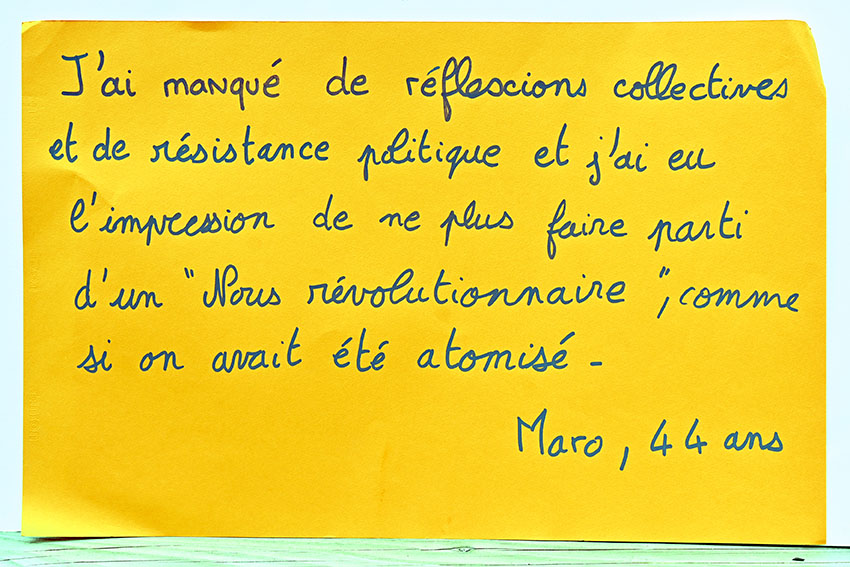 J'ai manqué de réflescions collectives
et de résistance politique et j'ai eu
l'impression de ne plus faire parti
d'un "Nous révolutionnaire", comme
si on avait été atomisé -
Maro, 44 ans